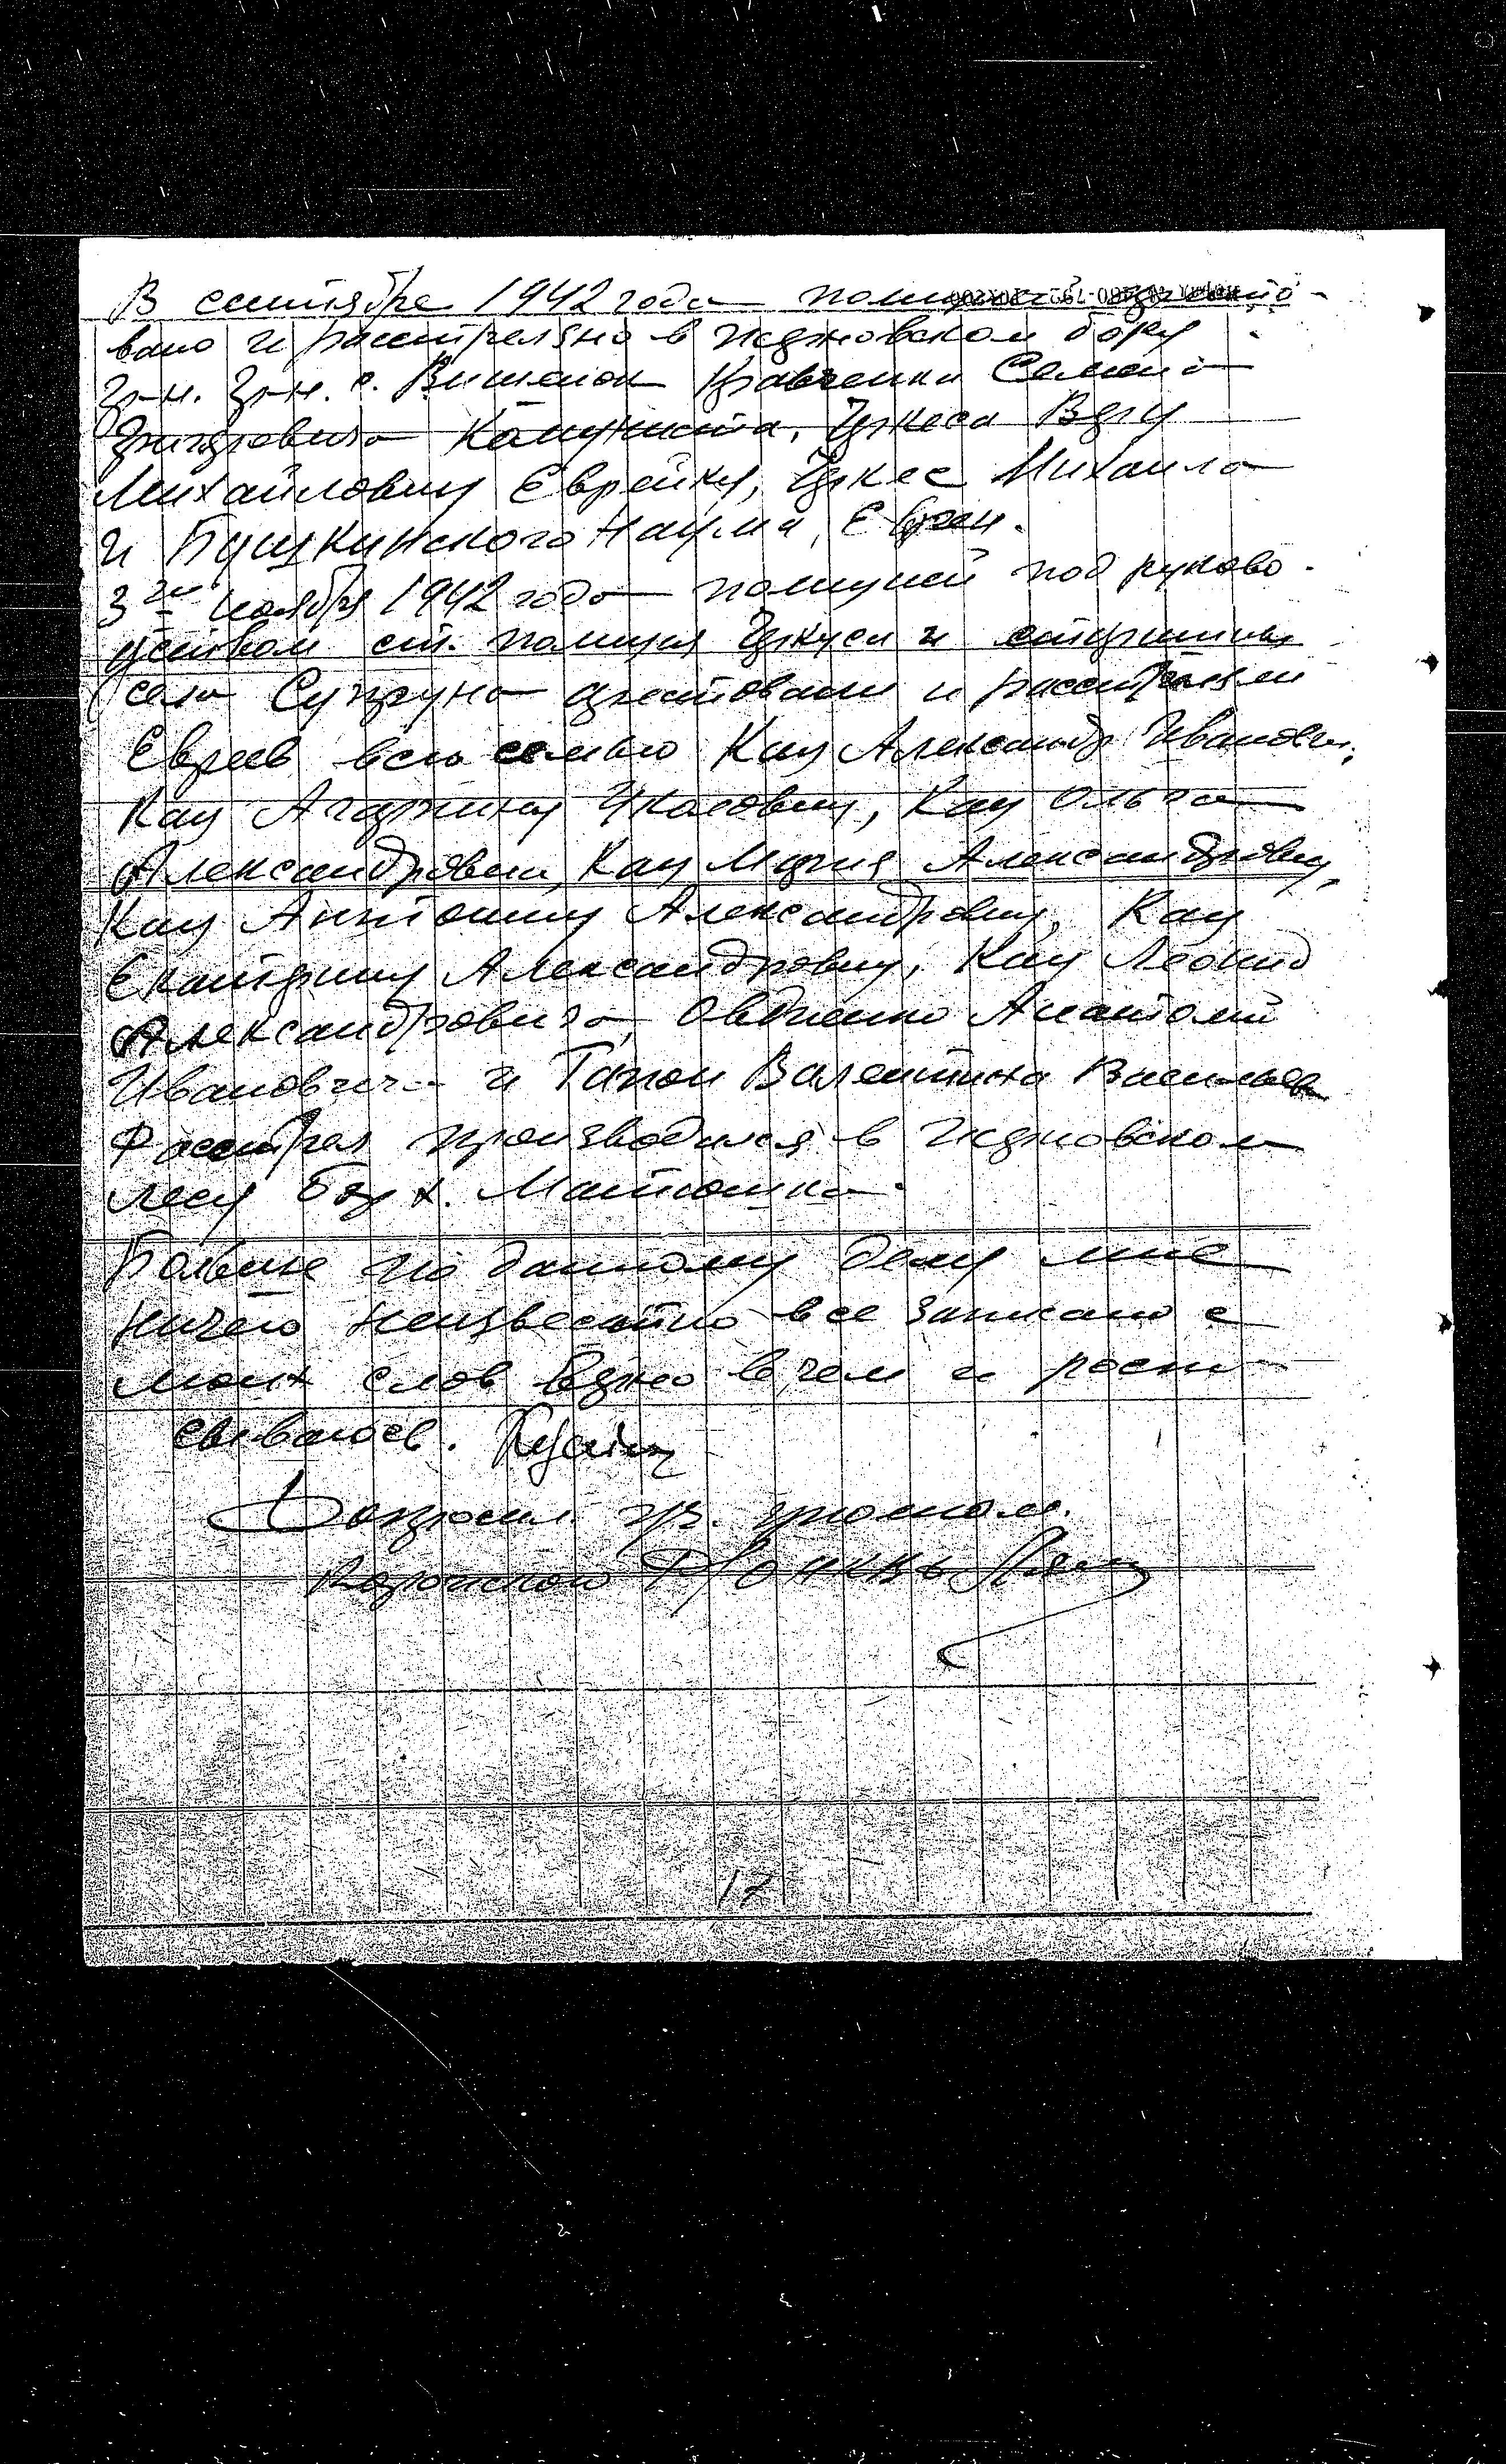 В сентябре 1942 года полицией аресто-
вано и расстреляно в Ждановском бору
гр-н. гр-н. с. Вишенок Кравченка Семена
Григоровича Комуниста, Цукеса Веру
Михайловну Еврейку, Цукес Михаила
и Пушкинского Наума, Евреи.
3го ноября 1942 года полицией под руково-
дством ст. полиция и старшины
села Супруна арестовали и расстреляли
Евреев всю семью Кац Александр Иванович,
Кац Ольга
Александровны, Кац Мария Александровну,
Кац Антонину Александровну, Кац
Екатерину Александровну, Кац Леонид
Александровича, Овдиенко Анатолий
Ивановича и Валентина
Расстрел производился в Ждановском
лесу х.
Больше по данному делу мне
ничего неизвестно все записано с
моих слов верно в чем и роспи-
сываюсь.
Допросил
Р/О НКВД
17